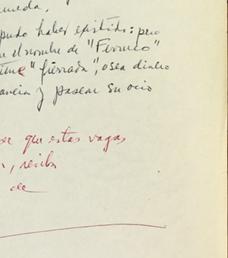 pudo haber existido: pero
el nombre de "Ferruco"
"fierrada", o sea dinero
y pasear su ocio
que estas vagas
, reciba
de